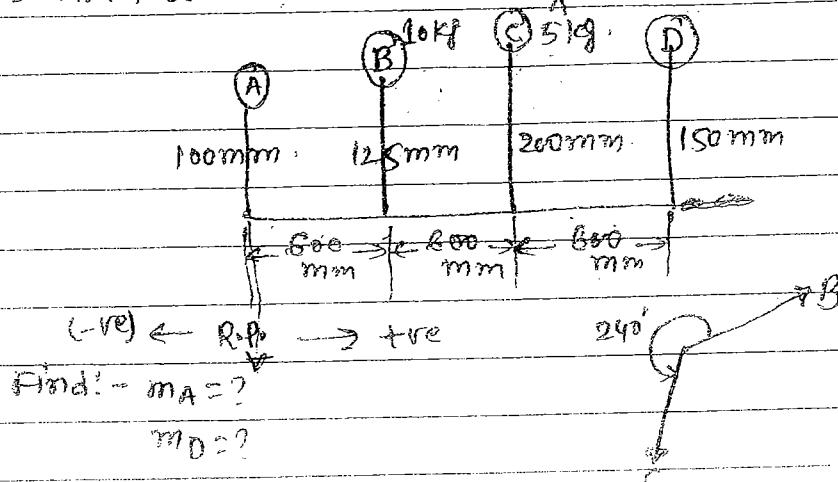 A
B 10kg C 5kg. D
A
100mm. 125mm 200mm. 150mm
600 600 600
mm mm mm
(-ve) ← R.P. → +ve
240° B
Find:- mA = ?
mD = ?